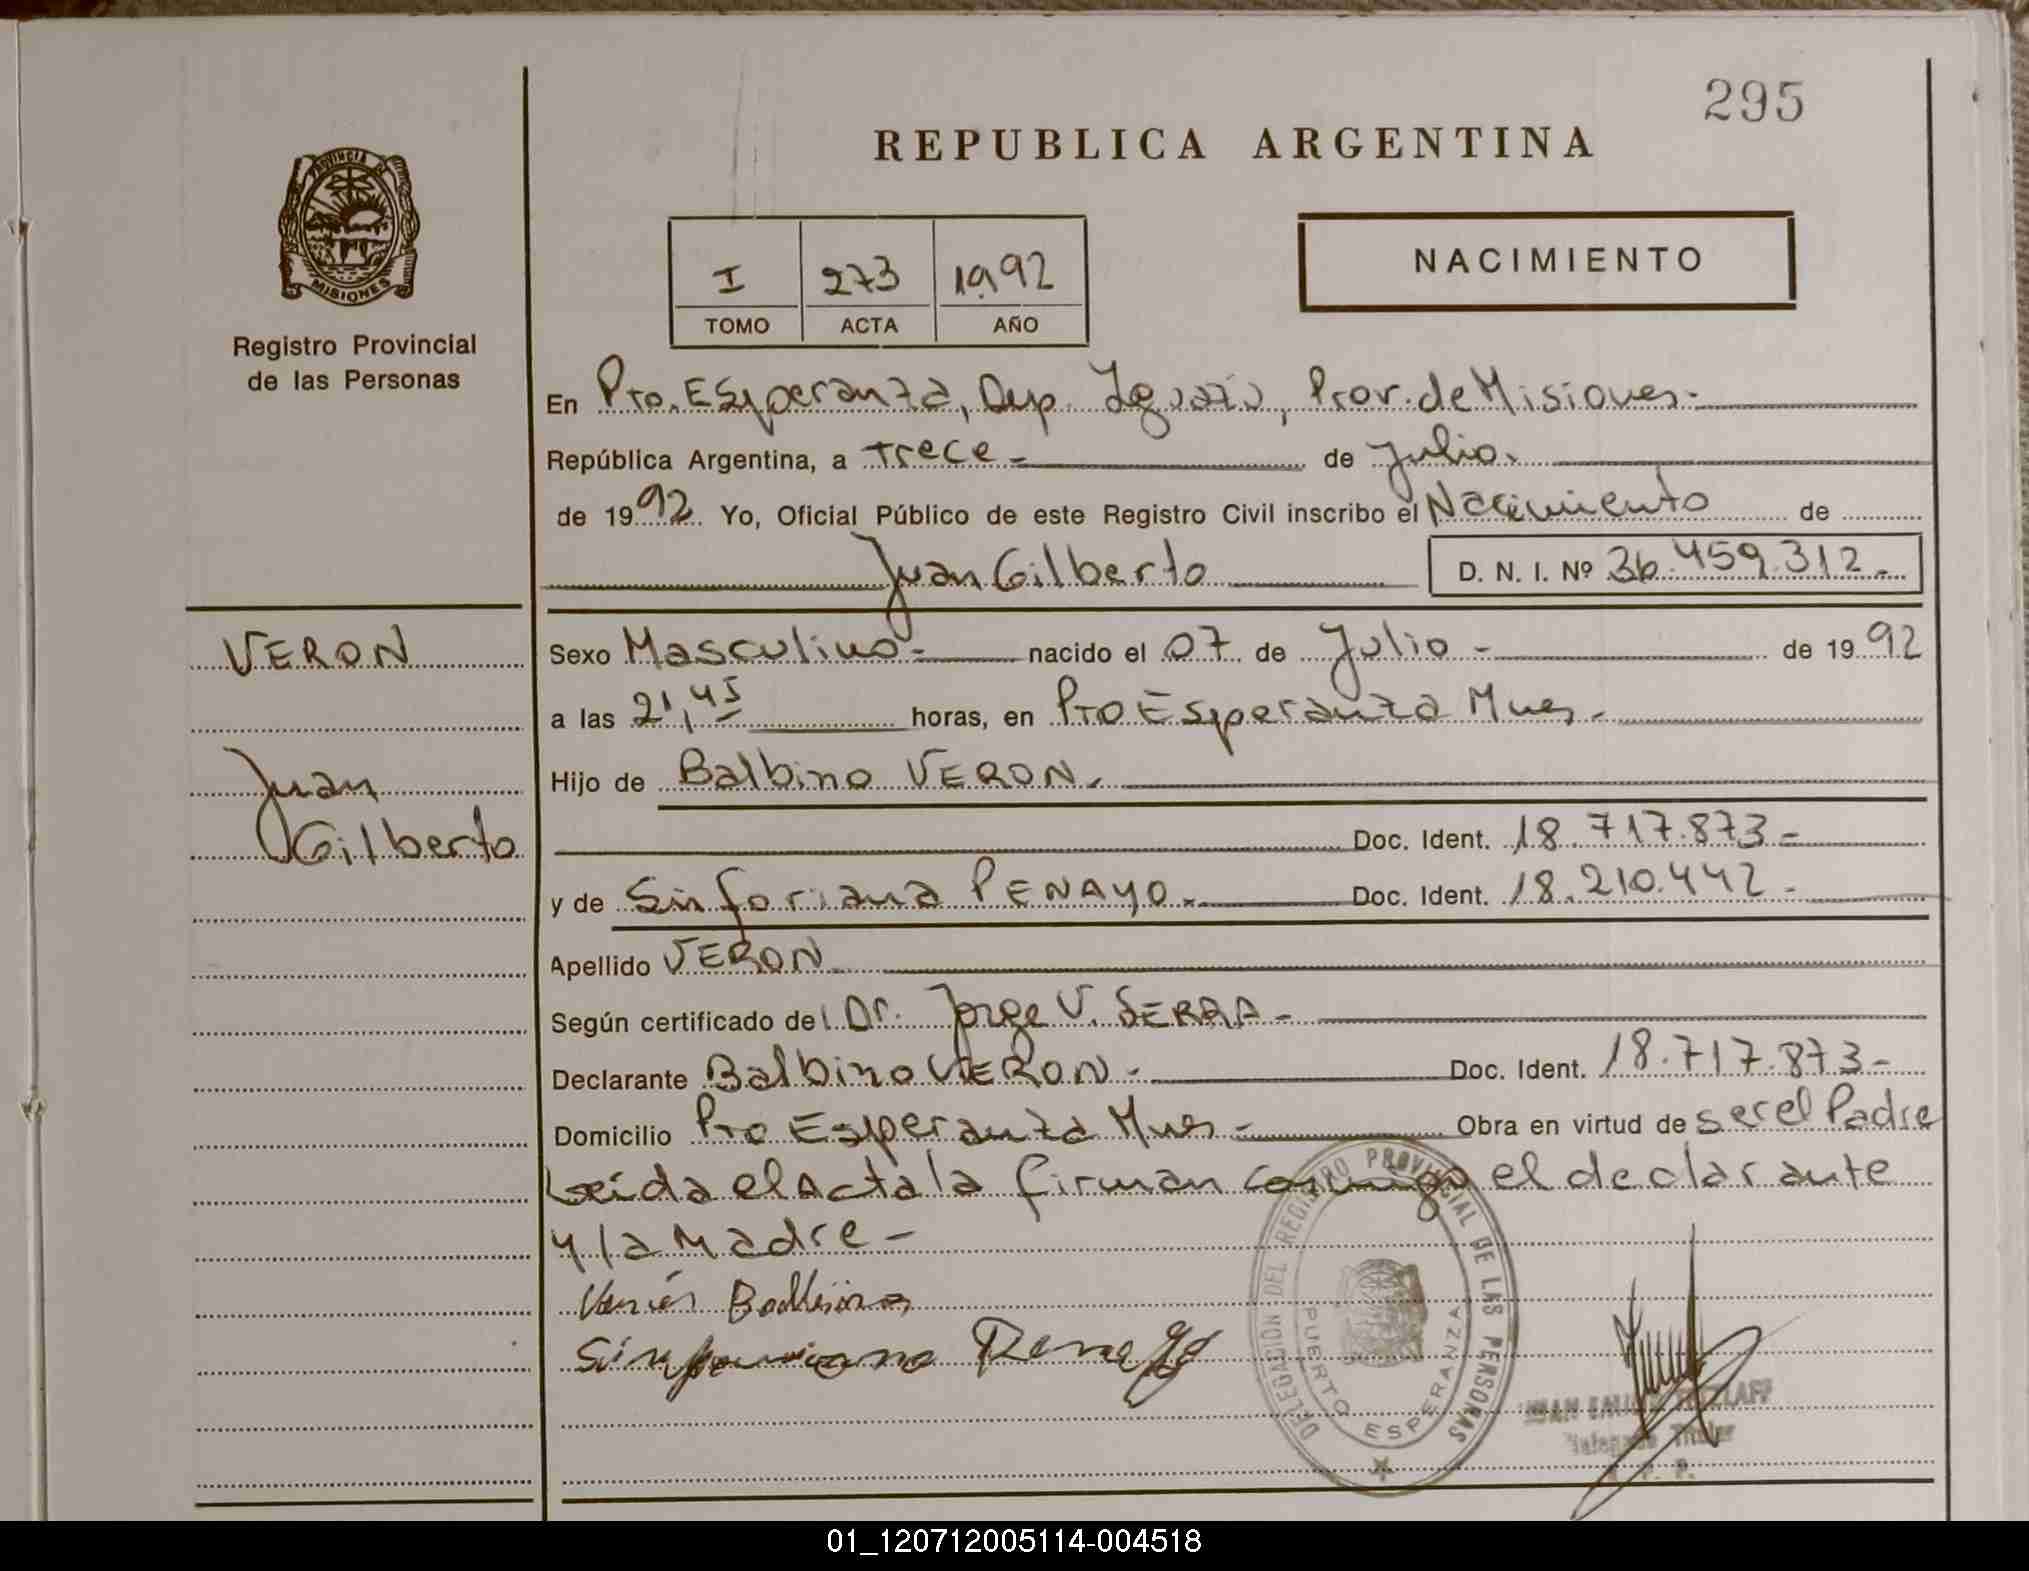 295
REPUBLICA ARGENTINA
PROVINCIA DE
MISIONES
Registro Provincial
de las Personas
I 273 1992
TOMO ACTA AÑO
NACIMIENTO
En Pto. Esperanza, Dep. Iguazú, Prov. de Misiones.-
República Argentina, a trece - de Julio.
de 1992. Yo, Oficial Público de este Registro Civil inscribo el Nacimiento de
Juan Gilberto D. N. I. Nº 36.459.312.-
VERON
Juan
Gilberto
Sexo Masculino.- nacido el 07 de Julio - de 1992
a las 21,45 horas, en Pto Esperanza Mnes.-
Hijo de Balbino VERON.
Doc. Ident. 18.717.873-
y de Sinforiana PENAYO.- Doc. Ident. 18.210.442.-
Apellido VERON
Según certificado del Dr. Jorge V. SERRA-
Declarante Balbino VERON.- Doc. Ident. 18.717.873-
Domicilio Pto Esperanza Mnes - Obra en virtud de ser el Padre
Leída el Acta la firman conmigo el declarante
y la Madre-
Balbino
DELEGACION DEL REGISTRO PROVINCIAL DE LAS PERSONAS
PUERTO ESPERANZA
Delegado Titular
01_120712005114-004518